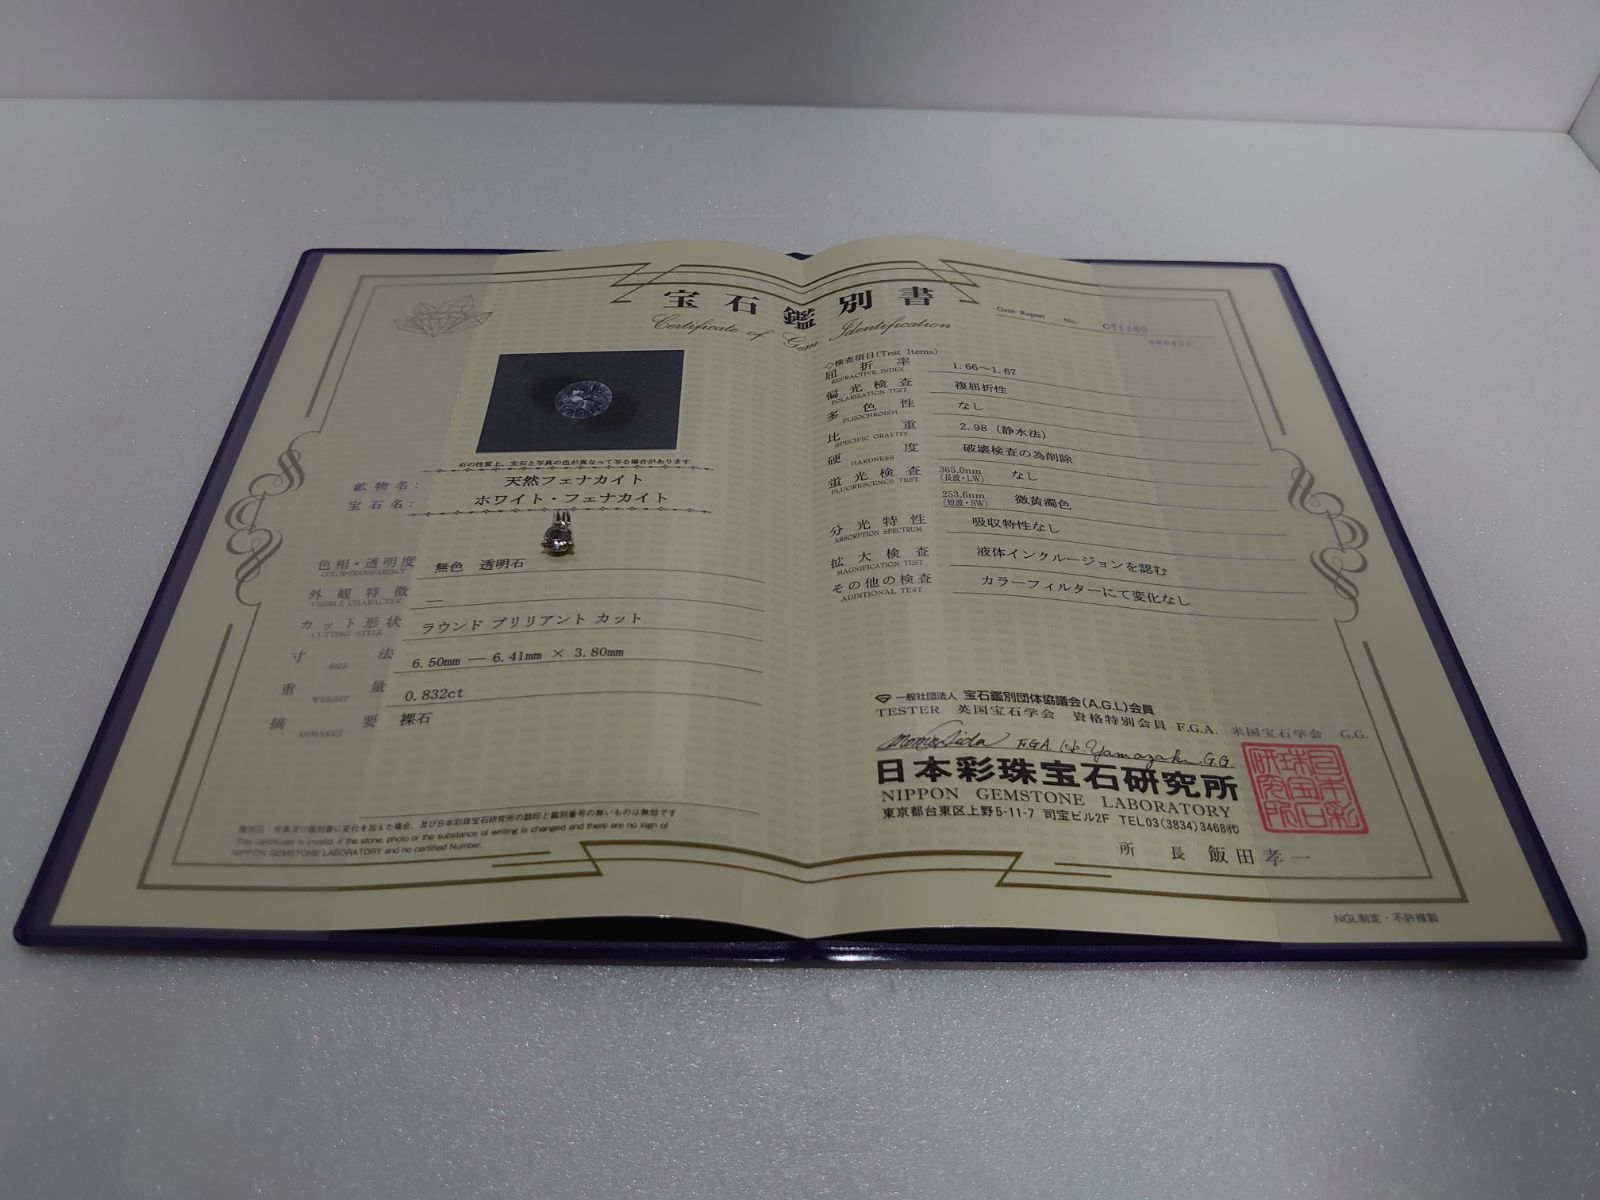 宝石鑑別書
Certificate of Gem Identification
Gem Report No. C71180
石の性質上、宝石と写真の色が異なって写る場合があります
鉱物名: 天然フェナカイト
宝石名: ホワイト・フェナカイト
色相・透明度 無色 透明石
COLOR・TRANSPARENCY
外観特徴 —
VISIBLE CHARACTER
カット形状 ラウンド ブリリアント カット
CUTTING STYLE
寸法 6.50mm — 6.41mm × 3.80mm
SIZE
重量 0.832ct
WEIGHT
摘要 裸石
REMARKS
This certificate is invalid, if the stone, photo or the substance of writing is changed and there are no sign of
NIPPON GEMSTONE LABORATORY and no certified Number.
○検査項目(Test Items)
屈折率 1.66〜1.67
REFRACTIVE INDEX
偏光検査 複屈折性
POLARIZATION TEST
多色性 なし
PLEOCHROISM
比重 2.98 (静水法)
SPECIFIC GRAVITY
硬度 破壊検査の為削除
HARDNESS
蛍光検査 365.0nm (長波・LW) なし
FLUORESCENCE TEST
253.6nm (短波・SW) 微黄濁色
分光特性 吸収特性なし
ABSORPTION SPECTRUM
拡大検査 液体インクルージョンを認む
MAGNIFICATION TEST
その他の検査 カラーフィルターにて変化なし
ADDITIONAL TEST
一般社団法人 宝石鑑別団体協議会(A.G.L)会員
TESTER 英国宝石学会 資格特別会員 F.G.A. 米国宝石学会 G.G.
F.G.A. Yamazaki G.G.
日本彩珠宝石研究所
NIPPON GEMSTONE LABORATORY
東京都台東区上野5-11-7 司宝ビル2F TEL03(3834)3468代
日本彩珠宝石研究所
所長 飯田孝一
NGL制定・不許複製